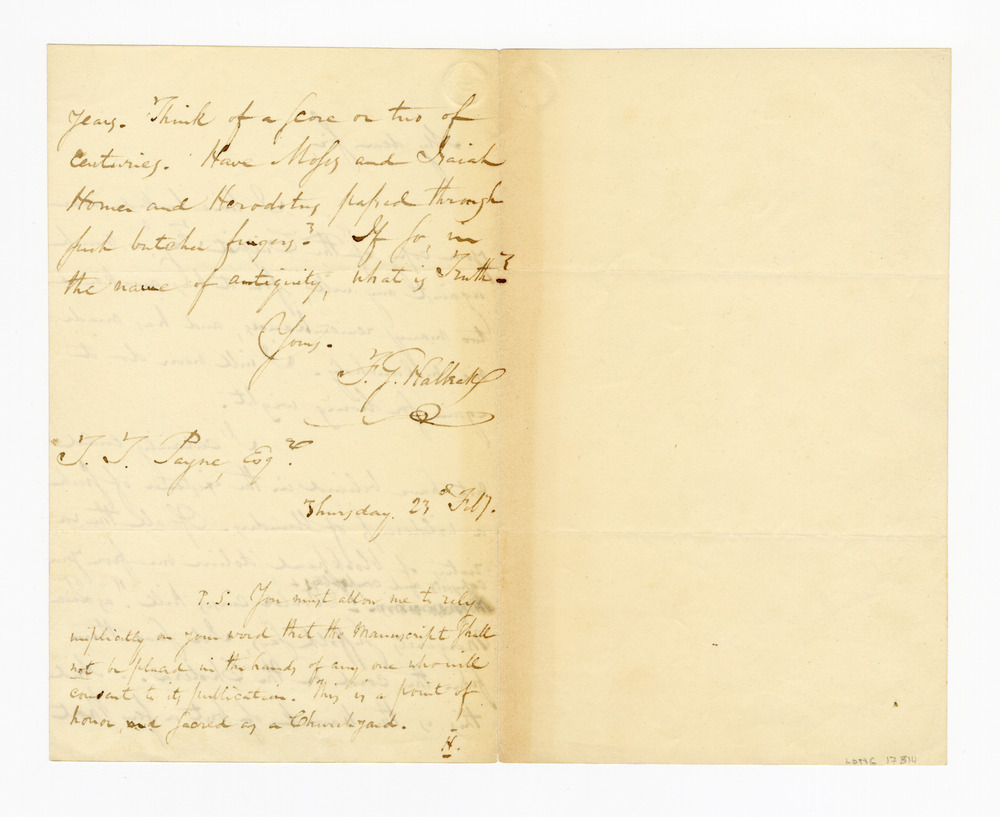 years. Think of a score or two of
centuries. Have Moses and Isaiah
Homer and Herodotus passed through
such butcher fingers? If so, in
the name of antiquity, what is Truth?
Yours.
F. G. Halleck
T. T. Payne, Esqr.
Thursday. 23d Feby.
P. S. You must allow me to rely
implicitly on your word that the Manuscript shall
not be placed in the hands of any one who will
consent to its publication. This is a point of
honor, and sacred as a Churchyard.
H.